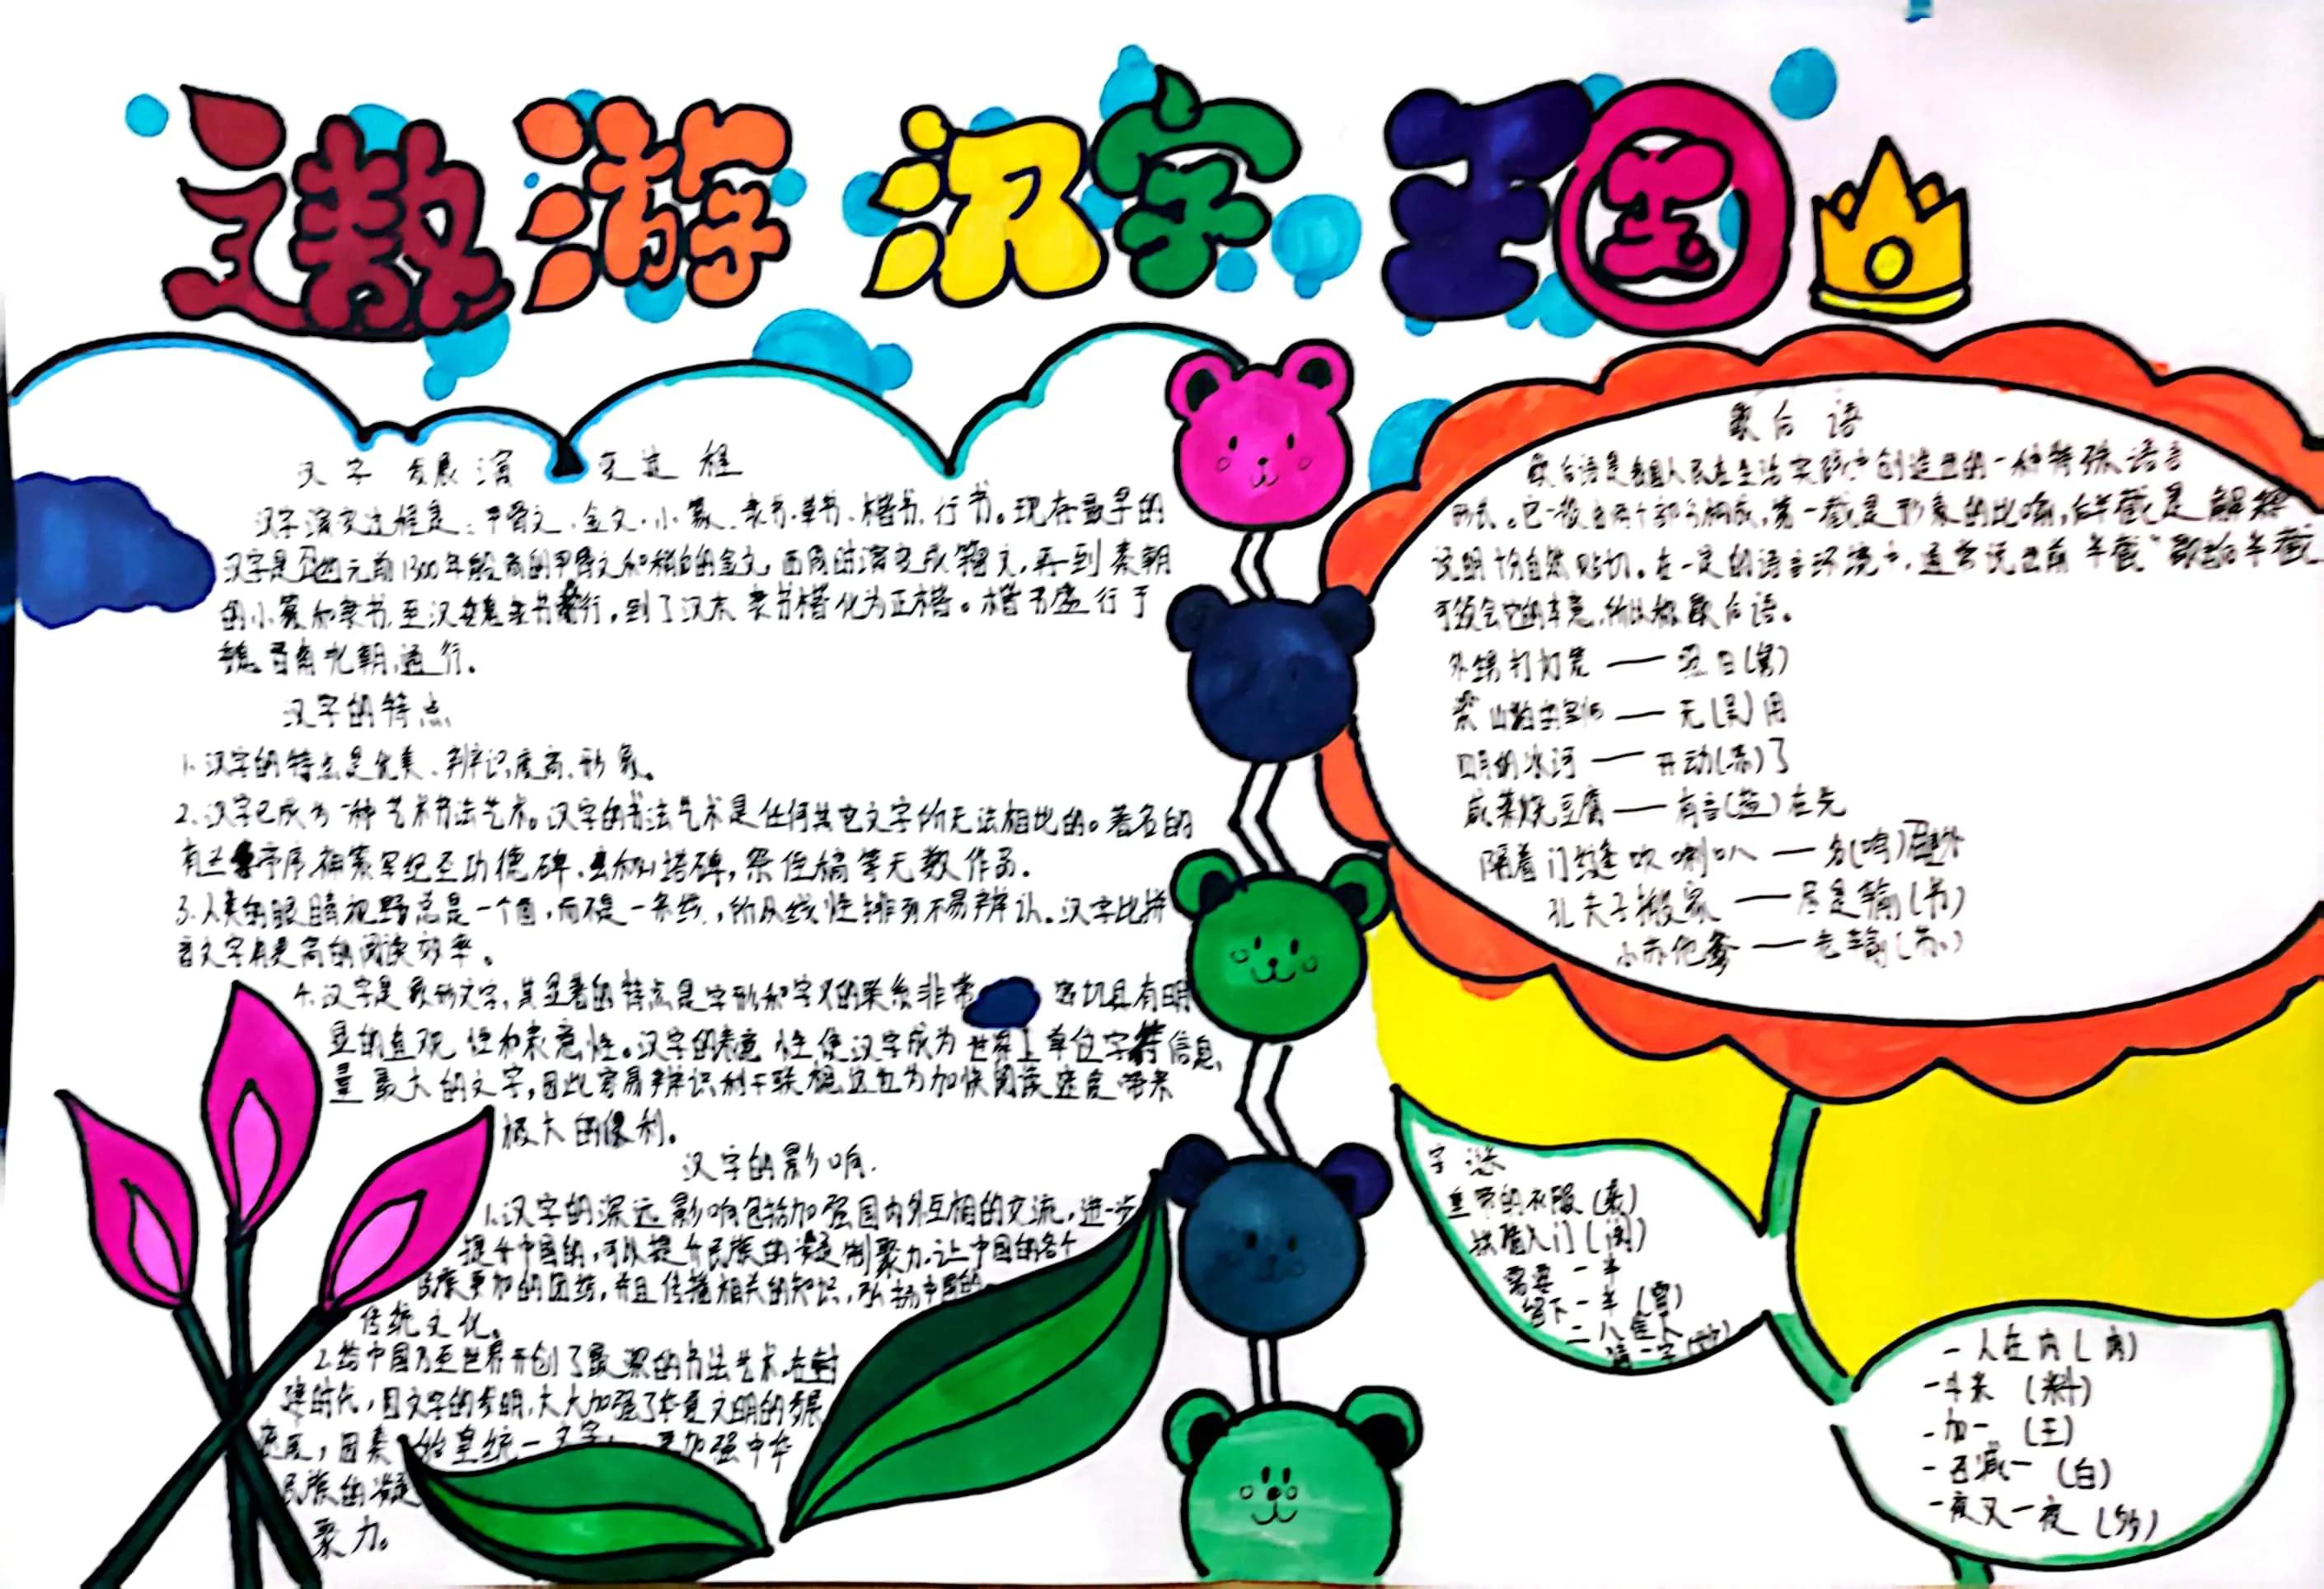 遨游汉字王国
汉字发展演变过程
汉字演变过程是:甲骨文、金文、小篆、隶书、草书、楷书、行书。现存最早的
汉字是公元前1300年殷商的甲骨文和稍后的金文,西周时演变成籀文,再到秦朝
的小篆和隶书,至汉魏隶书盛行,到了汉末隶书楷化为正楷。楷书盛行于
魏晋南北朝,通行。
汉字的特点
1.汉字的特点是优美、辨识度高、形象。
2.汉字已成为一种艺术书法艺术。汉字的书法艺术是任何其它文字所无法相比的。著名的
有兰亭序,神策军纪圣功德碑,祭侄稿等无数作品。
3.人类的眼睛视野总是一个面,而不是一条线,所以线性排列不易辨认。汉字比拼
音文字有更高的阅读效率。
4.汉字是象形文字,其显著的特点是字形和字义的联系非常密切且有明
显的直观性和表意性。汉字的表意性使汉字成为世界上单位字符信息
量最大的文字,因此容易辨识利于联想这也为加快阅读速度带来
极大的便利。
汉字的影响.
1.汉字的深远影响包括加强国内外互相的交流,进一步
提升中国的,可以提升民族的凝聚力.让中国的各个
民族更加的团结,并且传播相关的知识,弘扬中国的
传统文化。
2.给中国乃至世界开创了最深的书法艺术.在封
建时代,因文字的发明,大大加强了华夏文明的发展
速度,因秦始皇统一文字,更加强中华
民族的凝
聚力。
歇后语
歇后语是我国人民在生活实践中创造出的一种特殊语言
形式。它一般由两个部分构成,第一截是形象的比喻,后半截是解释
说明十分自然贴切。在一定的语言环境中,通常说出前半截“歇”后半截
可领会它的本意,所以称歇后语。
外甥打灯笼——照旧(舅)
梁山泊军师——无(吴)用
四月的冰河——开动(冻)了
咸菜烧豆腐——有言(盐)在先
隔着门缝吹喇叭——名(鸣)在外
孔夫子搬家——尽是输(书)
小苏他爹——老输(苏)
字谜
皇帝的衣服(袭)
才插入门(闭)
需要一半
留下一半(雷)
二八佳人
猜一字
一人在内(肉)
一斗米(料)
一加一(王)
一百减一(白)
一夜又一夜(多)